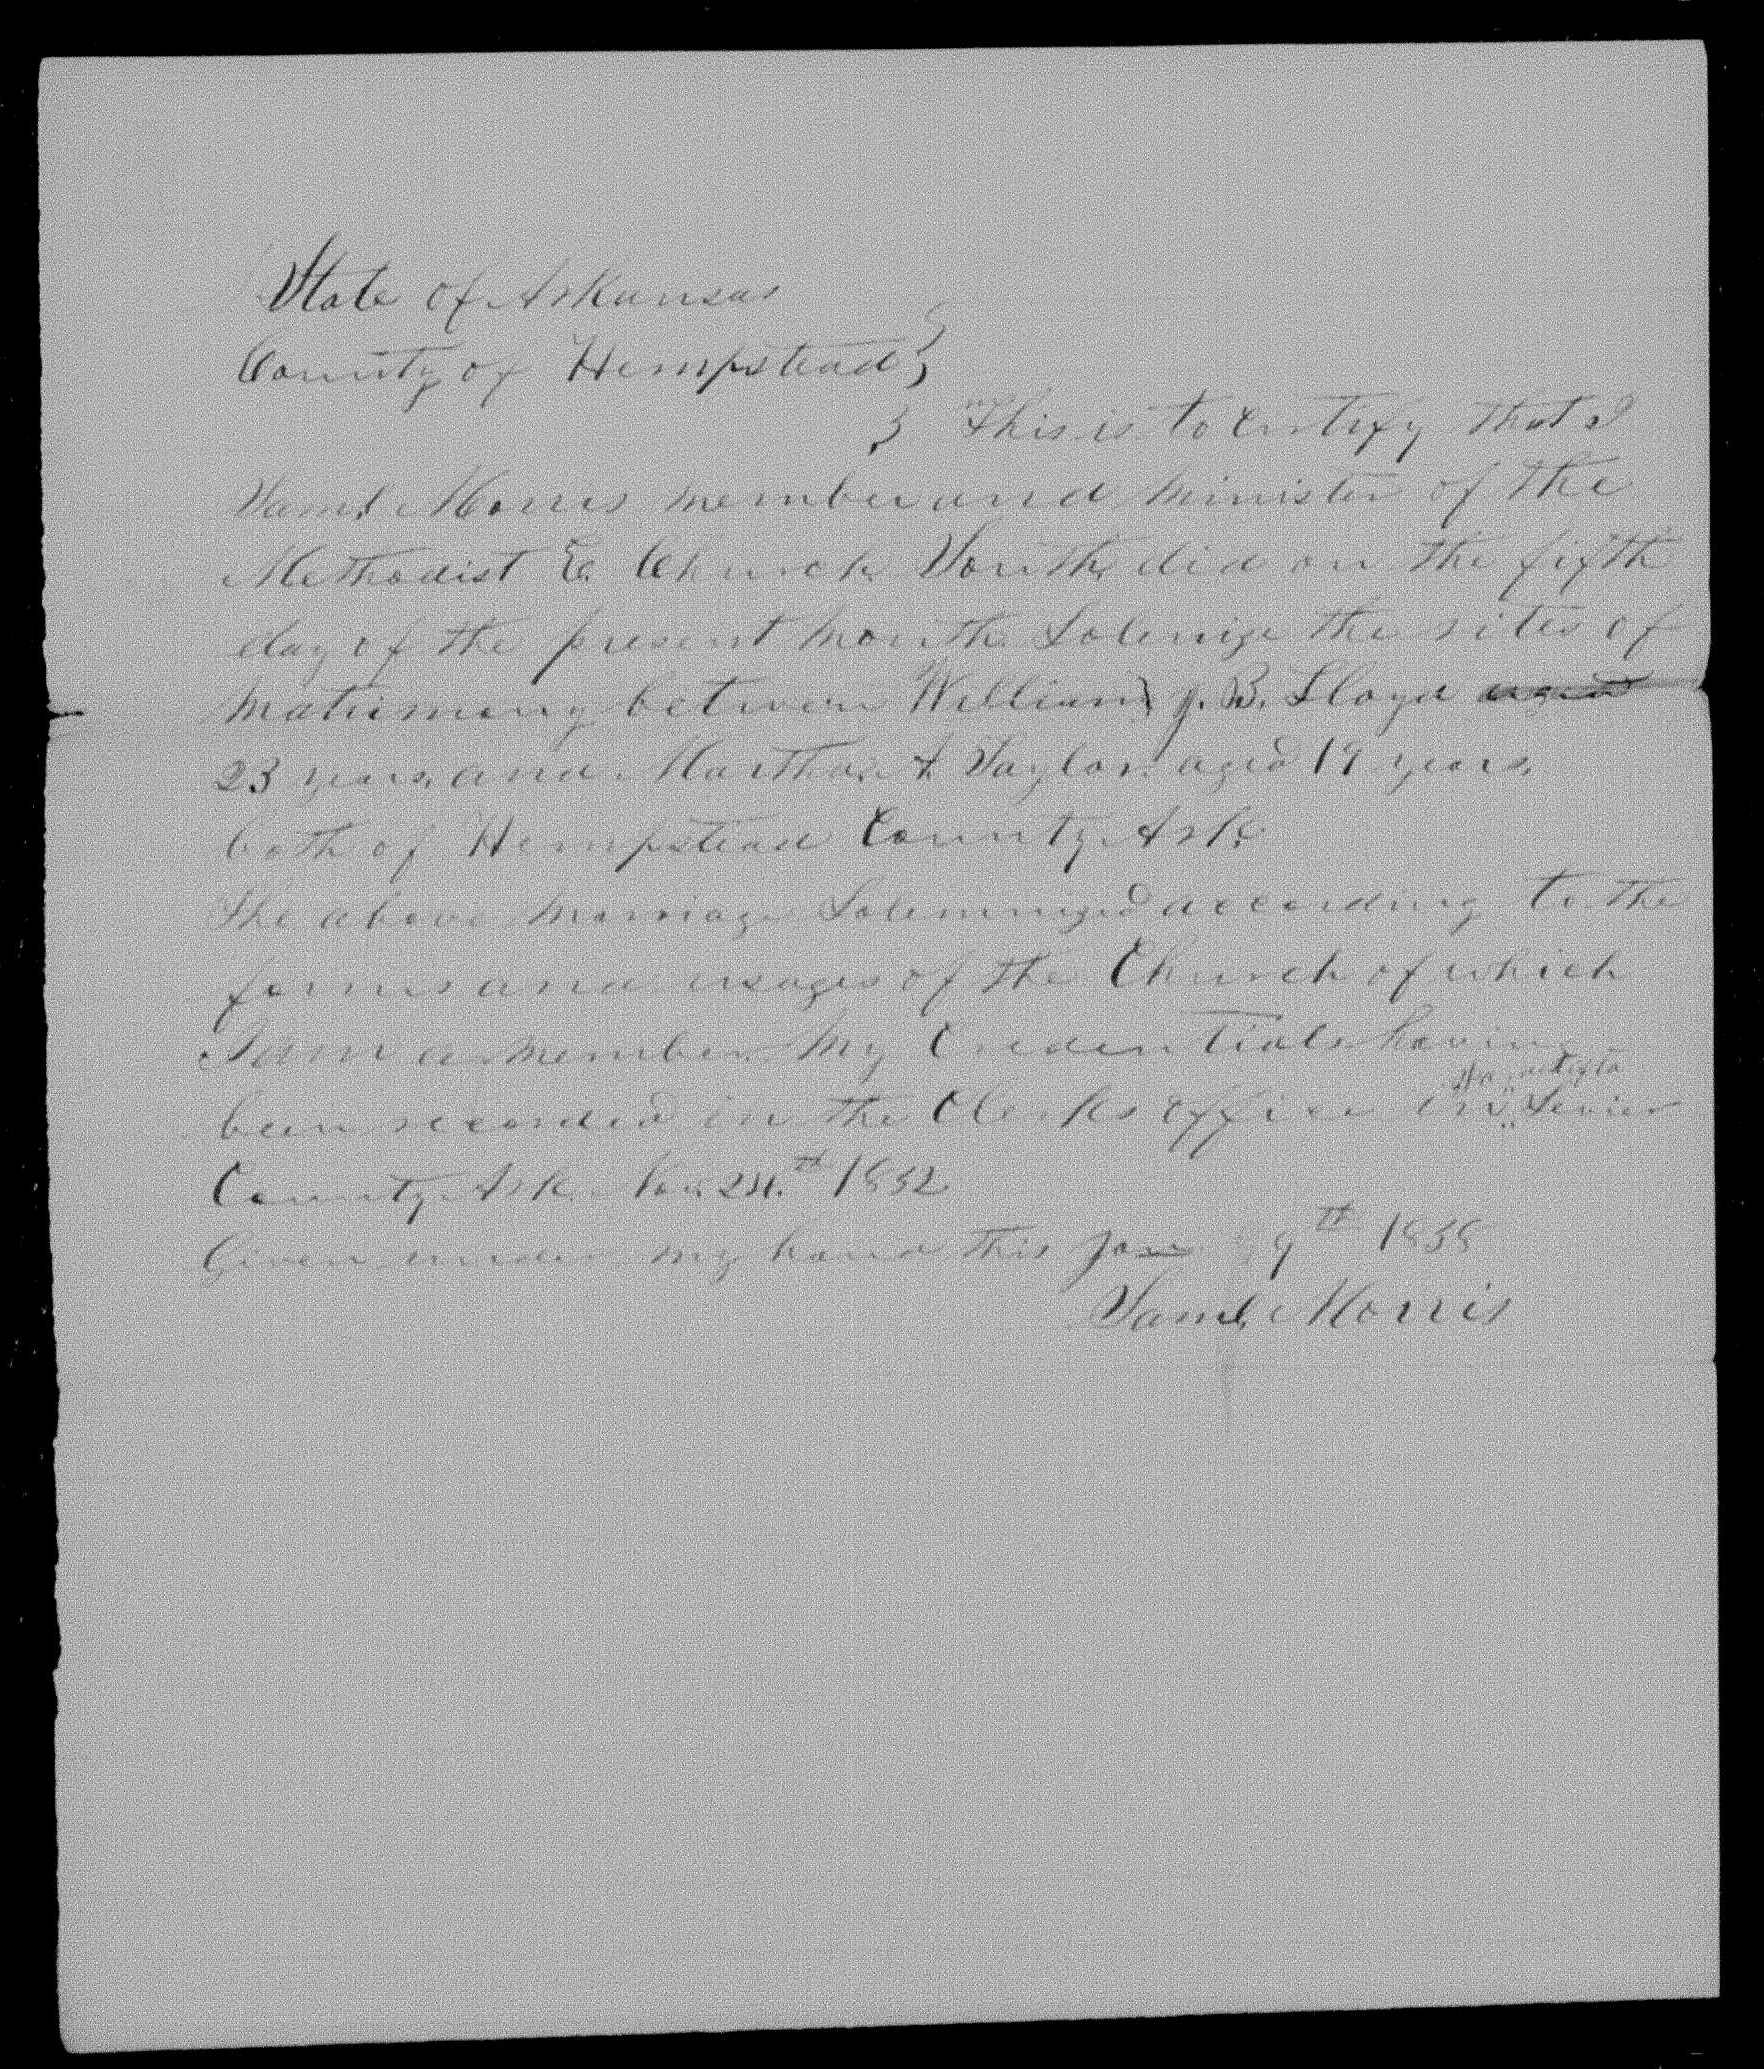 State of Arkansas
County of Hempstead }
} This is to certify that I
Saml. Morris member and minister of the
Methodist E. Church South, did on the fifth
day of the present month Solemize the rites of
matrimony between William J. B. Lloyd aged
23 years, and Martha A Taylor aged 19 years.
both of Hempstead County Ark.
The above marriage Solemnized according to the
forms and usages of the Church of which
I am a member. My Credentials having
been recorded in the Clerks office in Sevier
County Ark. Nov. 24th 1852
Given under my hand this Jan 9th 1858
Saml. Morris